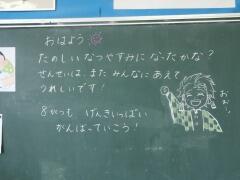 おはよう
たのしいなつやすみになったかな?
せんせいは、またみんなにあえて
うれしいです!
8がつも げんきいっぱい
がんばっていこう!
おぉ!